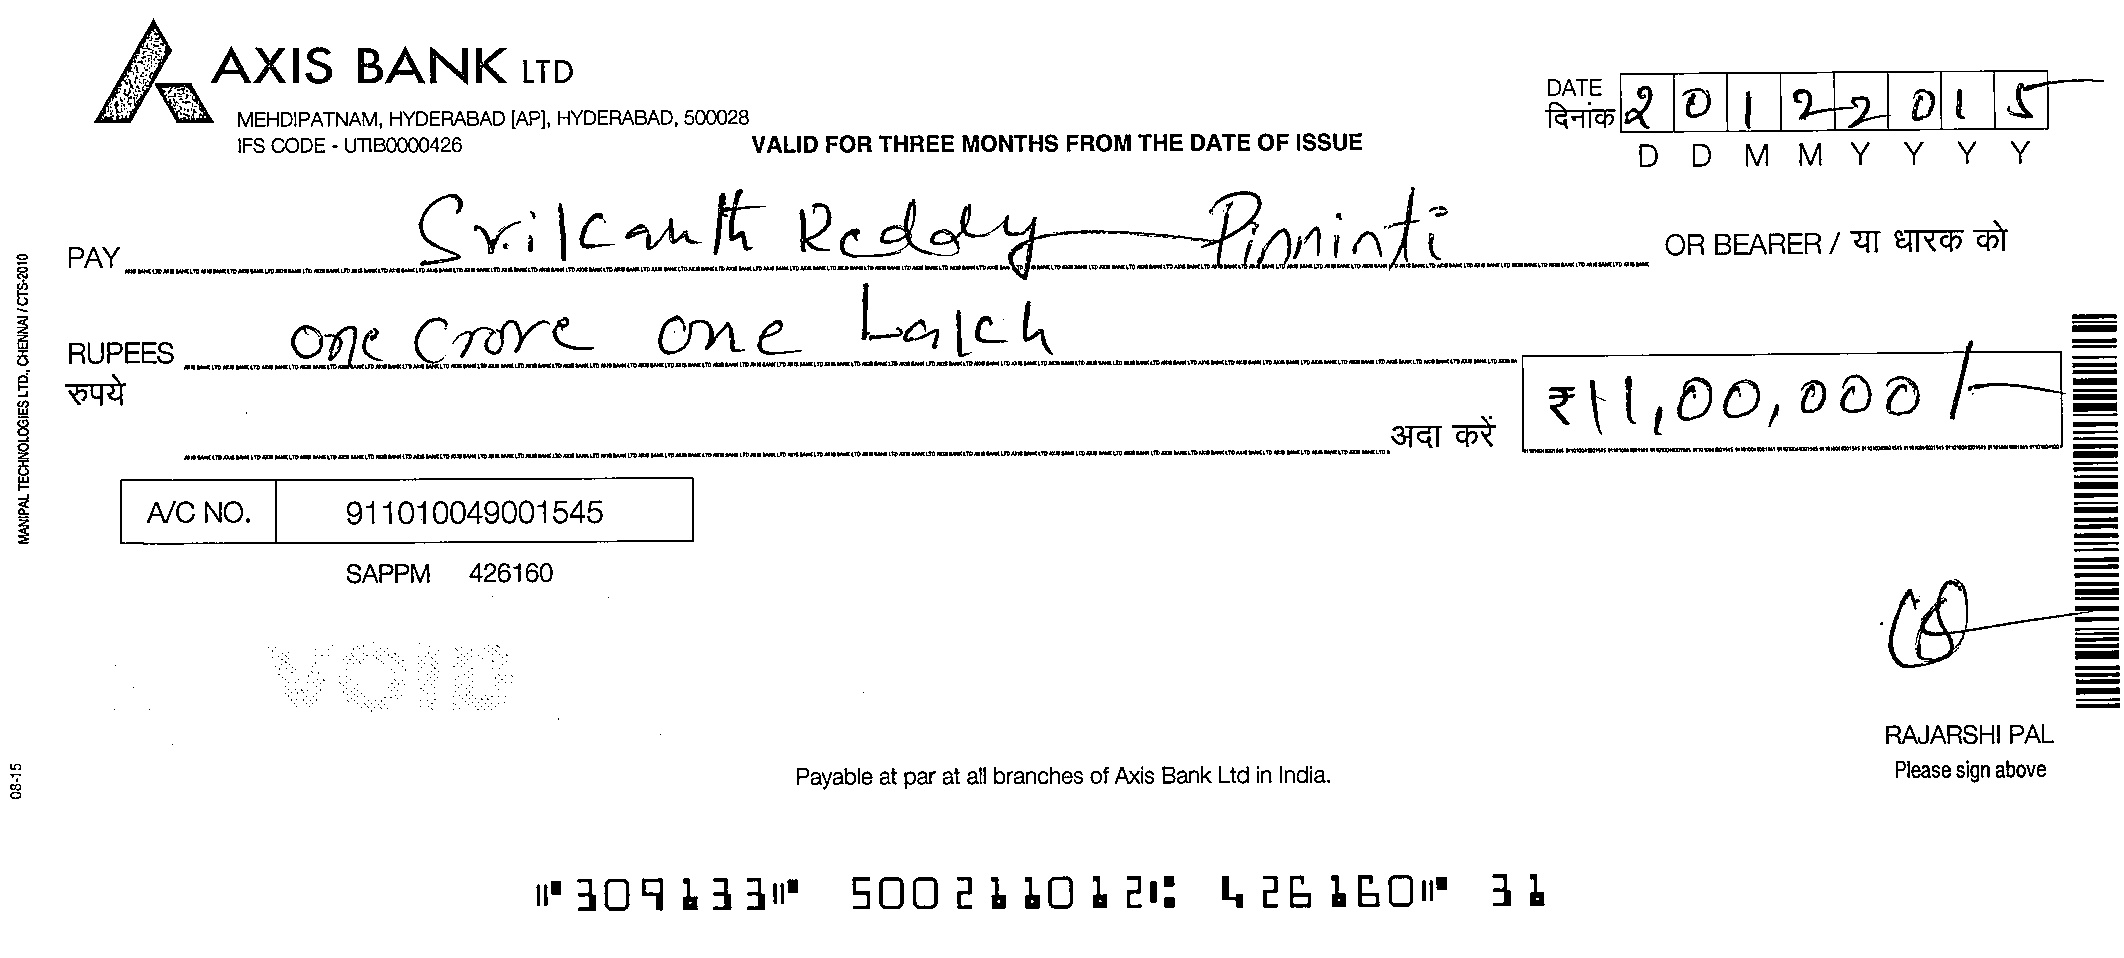 AXIS BANK LTD
MEHDIPATNAM, HYDERABAD [AP], HYDERABAD, 500028
IFS CODE - UTIB0000426
VALID FOR THREE MONTHS FROM THE DATE OF ISSUE
DATE 20122015
दिनांक
D D M M Y Y Y Y
PAY Srikanth Reddy Pinninti OR BEARER / या धारक को
RUPEES one crore one Lakh
रुपये
अदा करें ₹11,00,000/-
A/C NO. 911010049001545
SAPPM 426160
VOID
RAJARSHI PAL
Please sign above
Payable at par at all branches of Axis Bank Ltd in India.
MANIPAL TECHNOLOGIES LTD., CHENNAI / CTS-2010
08-15
⑈309133⑈ 500211012⑆ 426160⑈ 31